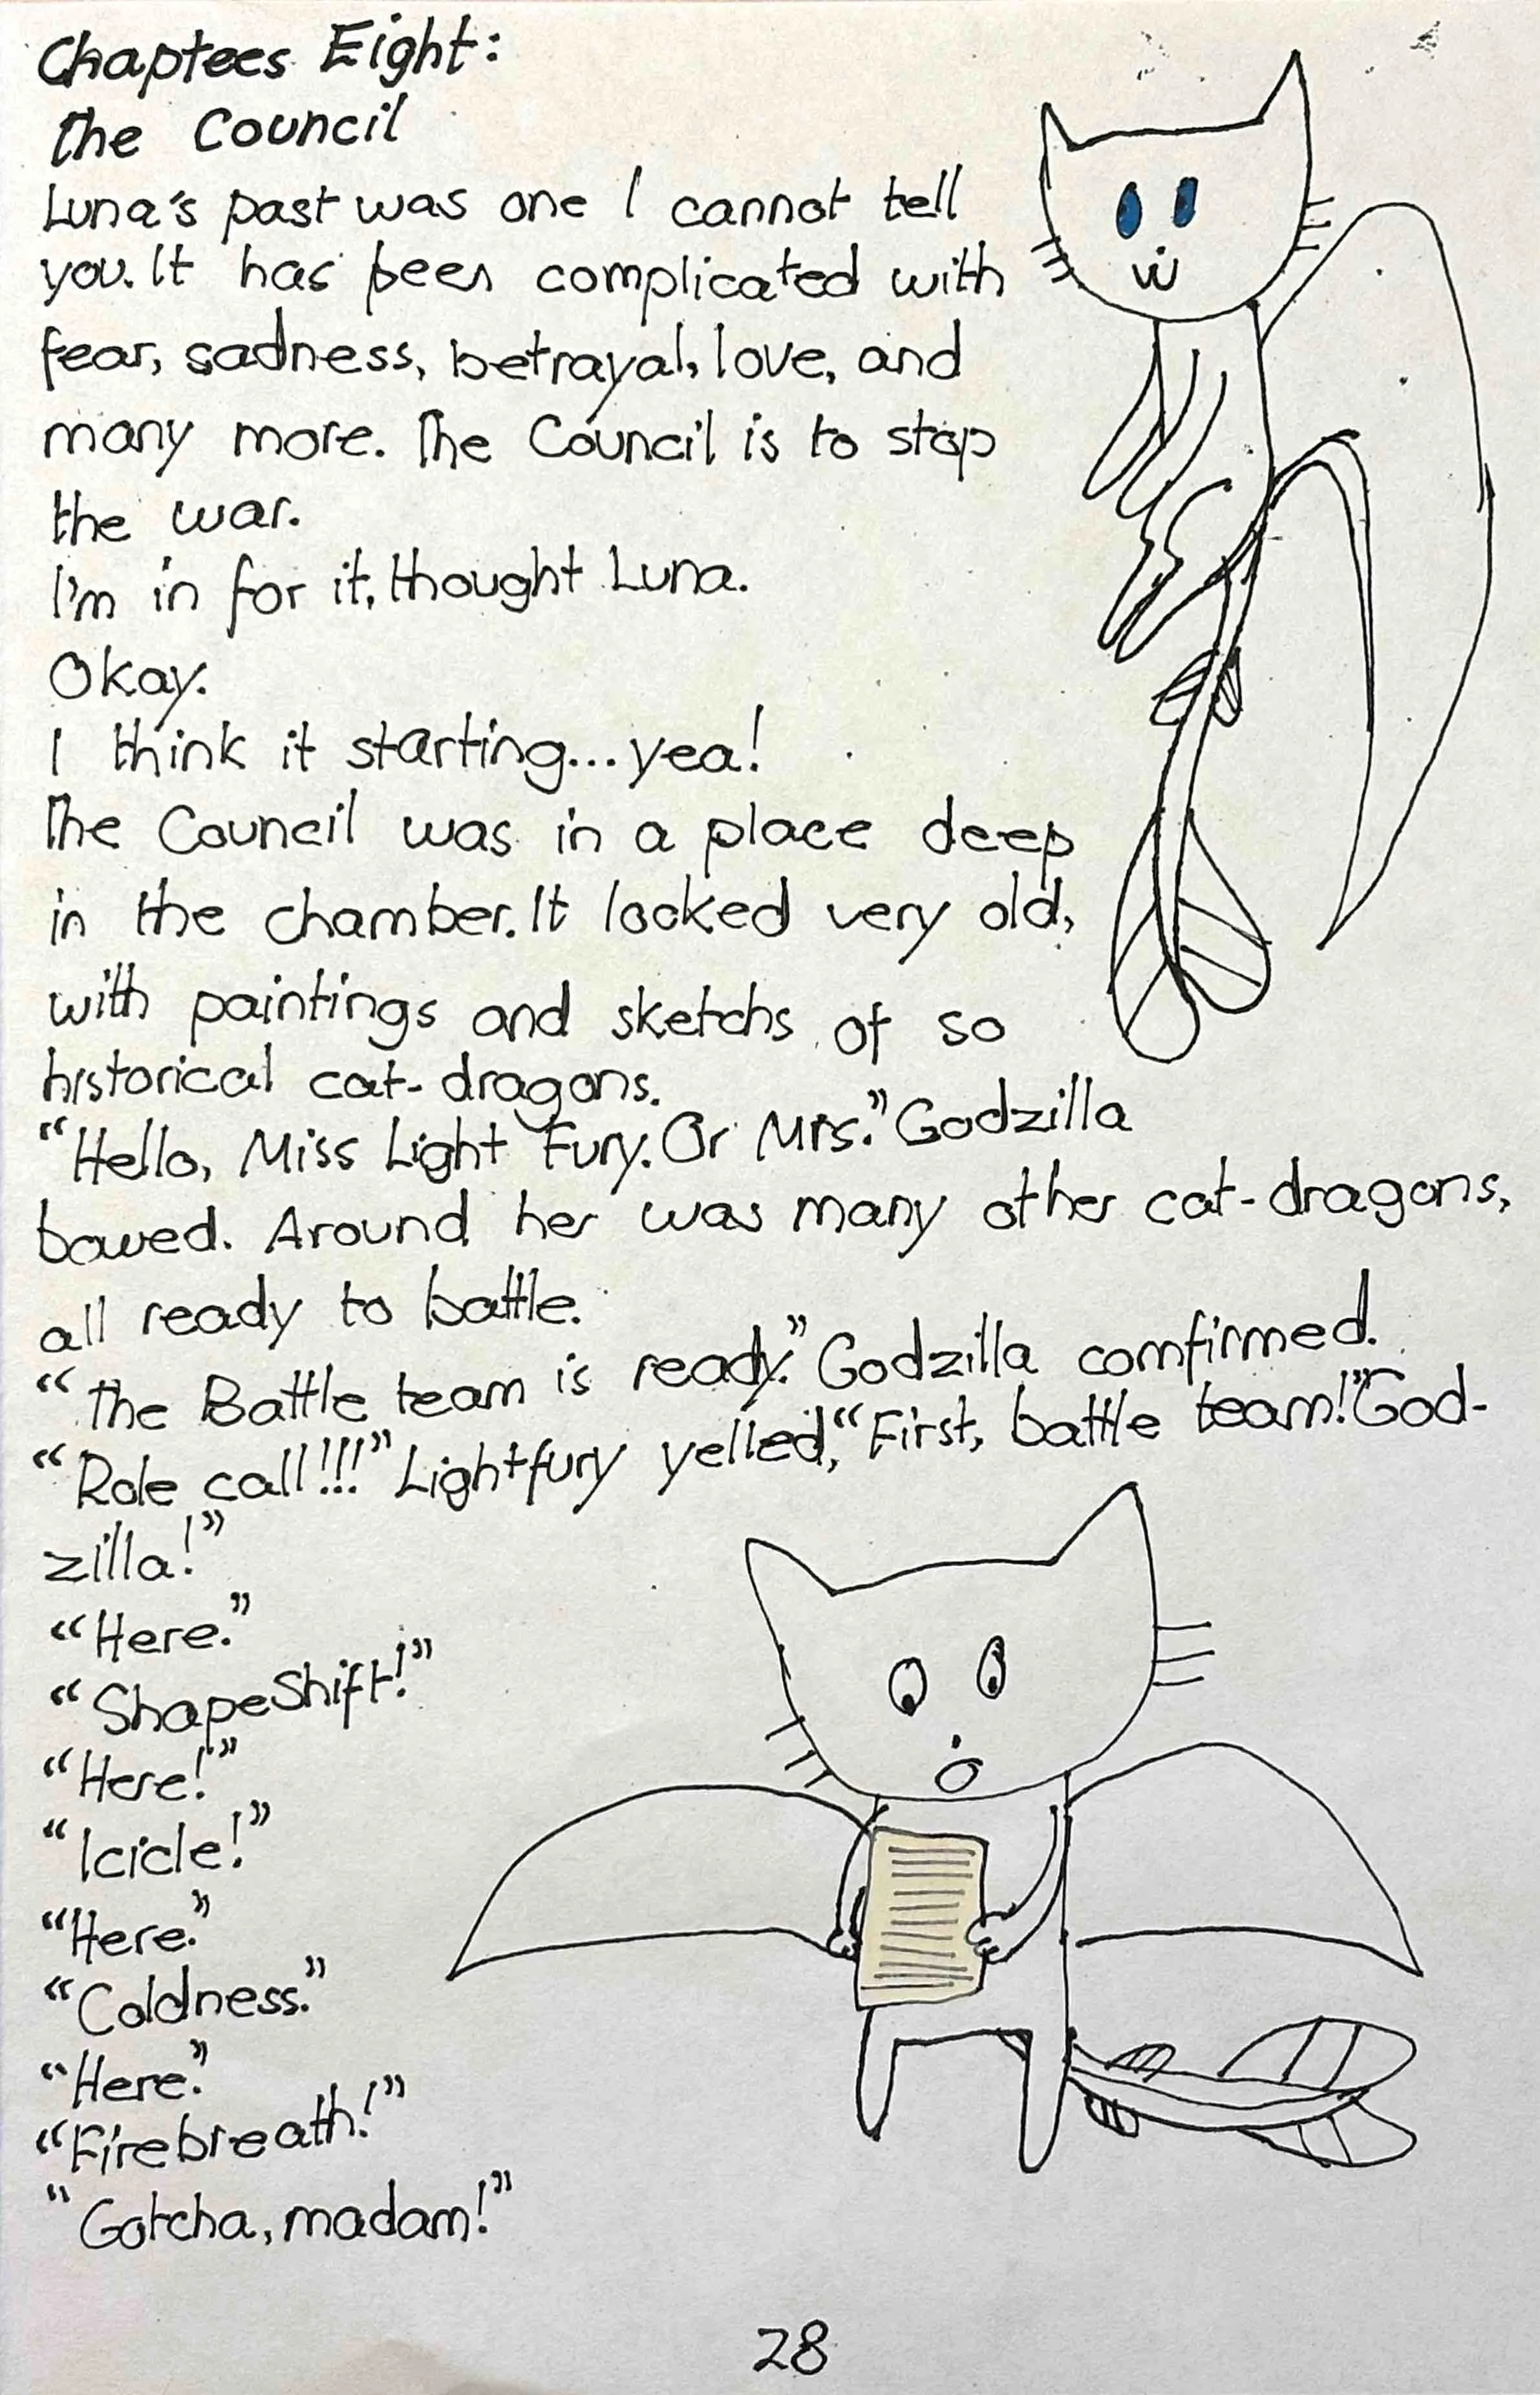 Chaptees Eight:
the Council
Luna's past was one I cannot tell
you. It has been complicated with
fear, sadness, betrayal, love, and
many more. The Council is to stop
the war.
I'm in for it, thought Luna.
Okay.
I think it starting...yea!
The Council was in a place deep
in the chamber. It looked very old,
with paintings and sketchs of so
historical cat-dragons.
"Hello, Miss Light Fury. Or Mrs." Godzilla
bowed. Around her was many other cat-dragons,
all ready to battle.
"The Battle team is ready." Godzilla comfirmed.
"Role call!!!" Lightfury yelled, "First, battle team!" "God-
zilla!"
"Here."
"ShapeShift!"
"Here!"
"Icicle!"
"Here."
"Coldness."
"Here."
"Firebreath!"
"Gotcha, madam!"
28